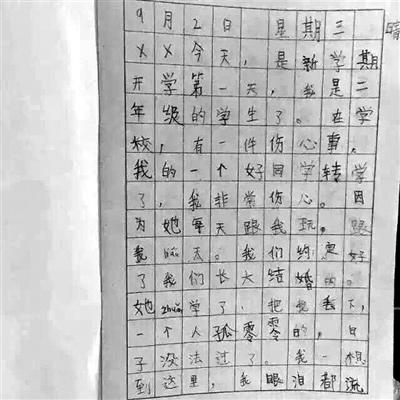 9月2日 星期三 晴
××今天，是新学期
开学第一天，我是二
年级的学生了。在学
校，有一件伤心事，
我的一个好同学转学
了，我非常伤心。因
为她每天跟我玩。跟
我聊天。我们约定好
了我们长大结婚的。
她zhuǎn学了，把我丢下，
一个人孤零零的，日
子没法过了。我一想
到这里，我眼泪都流